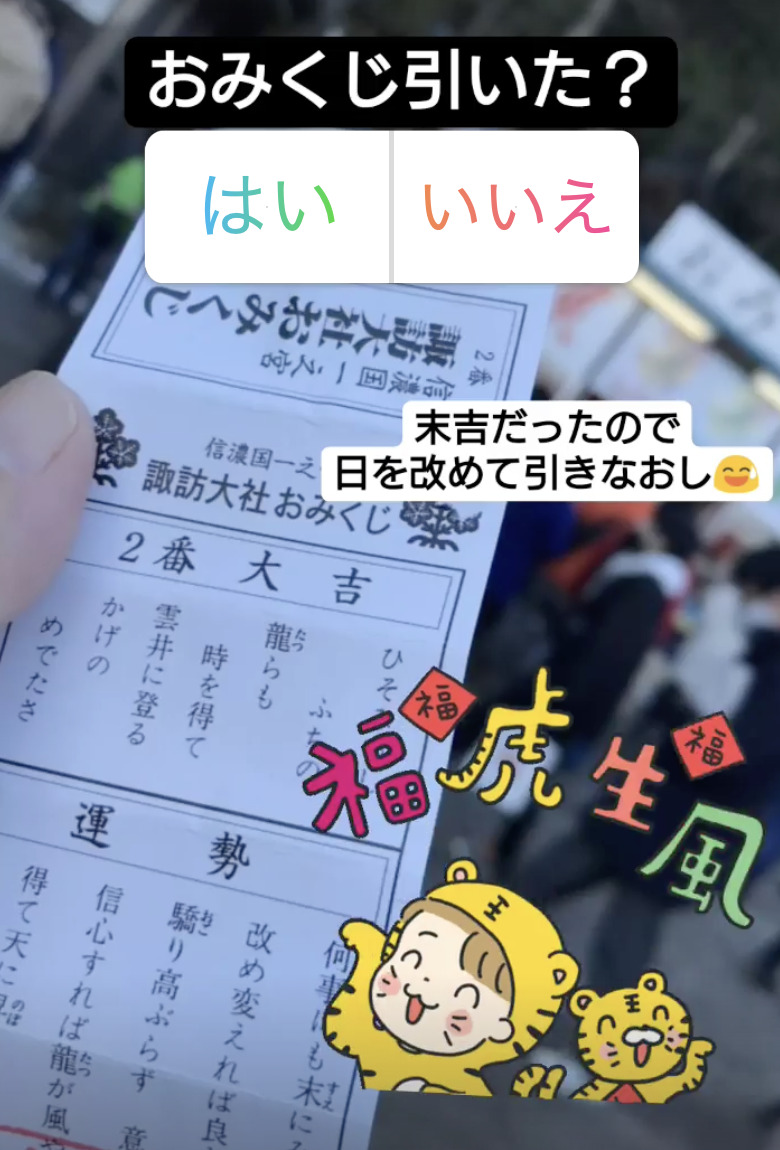 おみくじ引いた？
はい
いいえ
2番 信濃国一之宮
諏訪大社おみくじ
末吉だったので
日を改めて引きなおし😅
信濃国一之
諏訪大社おみくじ
2番 大吉
ひそ
ふちの
龍らも
たつ
時を得て
雲井に登る
かげの
めでたさ
福
福
福虎生風
運勢
何事も末に
すえ
改め変えれば良
驕り高ぶらず 意
おご
信心すれば龍が風
たつ
得て天に
のぼ
王
王